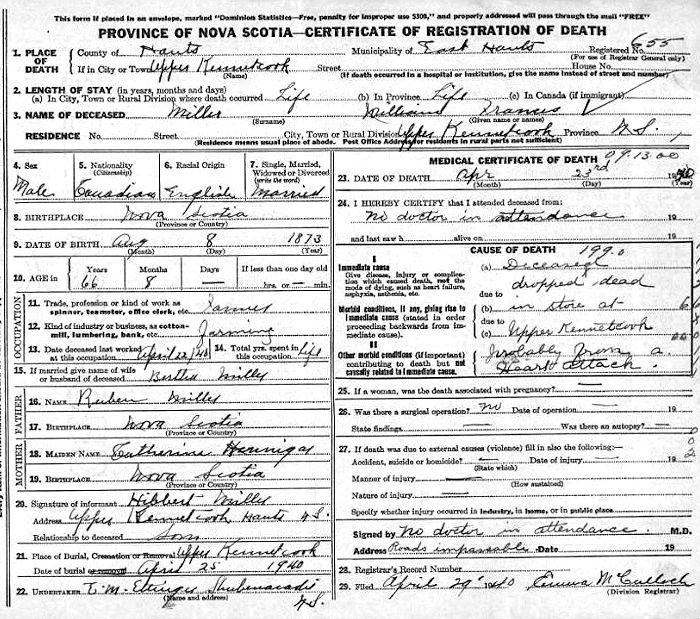 This form if placed in an envelope, marked "Dominion Statistics—Free, penalty for improper use $300," and properly addressed will pass through the mail "FREE"
PROVINCE OF NOVA SCOTIA—CERTIFICATE OF REGISTRATION OF DEATH
655
1. PLACE OF DEATH County of Hants Municipality of East Hants Registered No.
(For use of Registrar General only)
If in City or Town Upper Kennetcook Street House No.
(Name) (If death occurred in a hospital or institution, give the name instead of street and number)
2. LENGTH OF STAY (in years, months and days)
(a) In City, Town or Rural Division where death occurred Life (b) In Province Life (c) In Canada (if immigrant)
3. NAME OF DECEASED Miller William Francis
(Surname) (Given name or names)
RESIDENCE No. Street City, Town or Rural Division Upper Kennetcook Province N.S.
(Residence means usual place of abode. Post Office Address for residents in rural parts not sufficient)
4. Sex 5. Nationality (Citizenship) 6. Racial Origin 7. Single, Married, Widowed or Divorced (write the word)
Male Canadian English Married
8. BIRTHPLACE Nova Scotia
(Province or Country)
9. DATE OF BIRTH Aug 8 1873
(Month) (Day) (Year)
10. AGE in Years Months Days If less than one day old
66 8 — hrs. or — min.
OCCUPATION
11. Trade, profession or kind of work as spinner, teamster, office clerk, etc. Farmer
12. Kind of industry or business, as cotton-mill, lumbering, bank, etc. Farming
13. Date deceased last worked at this occupation April 22/40 14. Total yrs. spent in this occupation Life
15. If married give name of wife or husband of deceased Bertha Miller
FATHER
16. NAME Reuben Miller
17. BIRTHPLACE Nova Scotia
(Province or Country)
MOTHER
18. MAIDEN NAME Catherine Hennigar
19. BIRTHPLACE Nova Scotia
(Province or Country)
20. Signature of informant Hibbert Miller
Address Upper Kennetcook Hants N.S.
Relationship to deceased Son
21. Place of Burial, Cremation or Removal Upper Kennetcook
Date of burial or removal April 25 1940
22. UNDERTAKER T. M. Ettinger Shubenacadie
(Name and address) N.S.
MEDICAL CERTIFICATE OF DEATH 09.13.00
23. DATE OF DEATH Apr 23rd 1940
(Month) (Day) (Year)
24. I HEREBY CERTIFY that I attended deceased from:
No doctor in attendance 19
and last saw h alive on 19
CAUSE OF DEATH 199.0
I
Immediate cause
Give disease, injury or complication which caused death, not the mode of dying, such as heart failure, asphyxia, asthenia, etc.
(a) Deceased dropped dead
due to
Morbid conditions, if any, giving rise to immediate cause (stated in order proceeding backwards from immediate cause).
(b) in store at
due to
(c) Upper Kennetcook
II
Other morbid conditions (if important) contributing to death but not causally related to immediate cause.
Probably from a
Heart attack.
25. If a woman, was the death associated with pregnancy? —
26. Was there a surgical operation? no Date of operation — 19
State findings — Was there an autopsy? —
27. If death was due to external causes (violence) fill in also the following:—
Accident, suicide or homicide? — Date of injury — 19
(State which)
Manner of injury —
(How sustained)
Nature of injury —
Specify whether injury occurred in industry, in home, or in public place
Signed by No doctor in attendance. M.D.
Address Roads impassable Date 19
28. Registrar's Record Number
29. Filed April 29' 1940 Emma McCulloch
(Division Registrar)